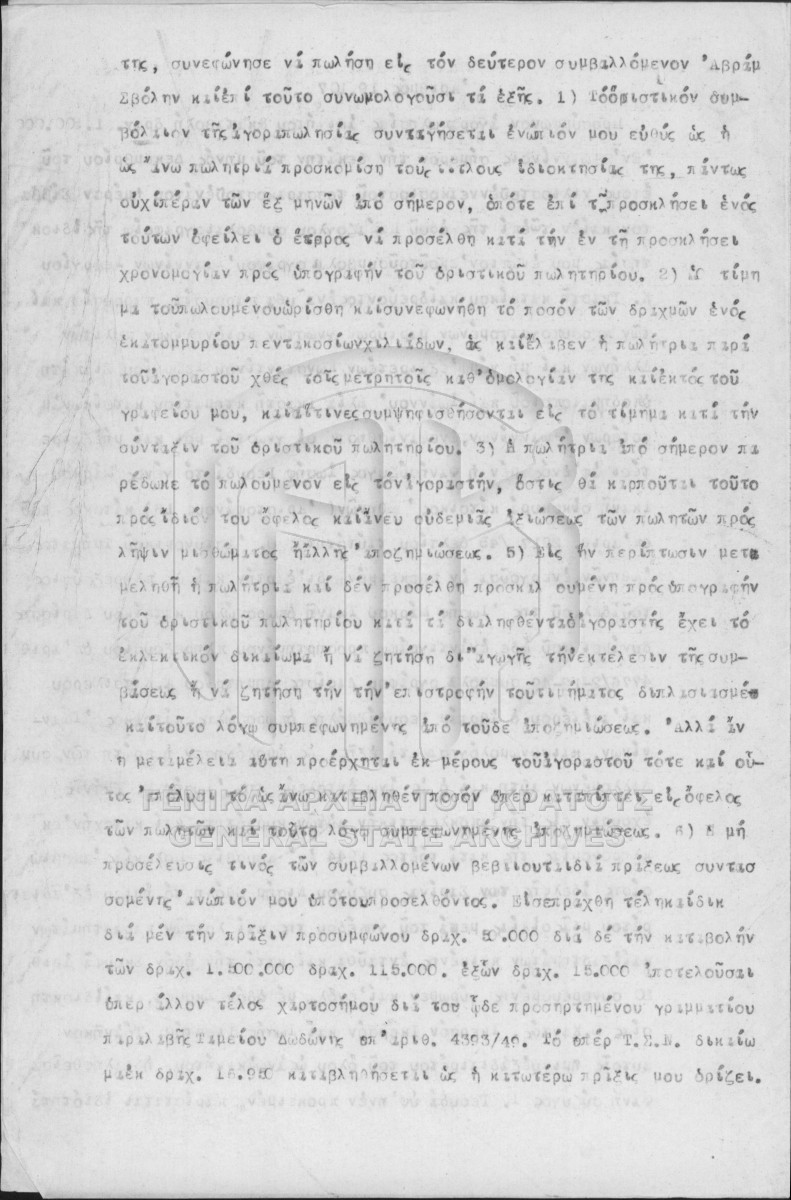 της, συνεφώνησε νά πωλήση εἰς τόν δεύτερον συμβαλλόμενον Ἀβράμ
Σβόλην καίἐπί τοῦτο συνωμολογοῦσι τά ἑξῆς. 1) Τόὁριστικόν συμ-
βόλαιον τῆςἀγοραπωλησίας συνταγήσεται ἐνώπιόν μου εὐθύς ὡς ἡ
ὡς ἄνω πωλήτρια προσκομίση τούς τίτλους ἰδιοκτησίας της, πάντως
οὐχίπέραν τῶν ἕξ μηνῶν ἀπό σήμερον, ὁπότε ἐπί τῇ προσκλήσει ἑνός
τούτων ὀφείλει ὁ ἕτερος νά προσέλθη κατά τήν ἐν τῇ προσκλήσει
χρονομογίαν πρός ὑπογραφήν τοῦ ὁριστικοῦ πωλητηρίου. 2) Ἡ τίμη
μα τοῦπωλουμένουὡρίσθη καίσυνεφωνήθη τό ποσόν τῶν δραχμῶν ἑνός
ἑκατομμυρίου πεντακοσίωνχιλιάδων, ἅς καίἔλαβεν ἡ πωλήτρια παρά
τοῦἀγοραστοῦ χθές τοῖς μετρητοῖς καθ'ὁμολογίαν της καίἐκτός τοῦ
γραφείου μου, καίαἵτινες συμψηφισθήσονται εἰς τό τίμημα κατά τήν
σύνταξιν τοῦ ὁριστικοῦ πωλητηρίου. 3) Ἡ πωλήτρια ἀπό σήμερον πα
ρέδωκε τό πωλούμενον εἰς τόνἀγοραστήν, ὅστις θά καρποῦται τοῦτο
πρός ἴδιόν του ὄφελος καίἄνευ οὐδεμιᾶς ἀξιώσεως τῶν πωλητῶν πρός
λῆψιν μισθώματος ἤἄλλης ἀποζημιώσεως. 5) Εἰς ἥν περίπτωσιν μετα
μεληθῆ ἡ πωλήτρια καί δέν προσέλθη προσκαλ ουμένη πρός ὑπογραφήν
τοῦ ὁριστικοῦ πωλητηρίου κατά τά διαληφθένταὁἀγοραστής ἔχει τό
ἐκλεκτικόν δικαίωμα ἤ νά ζητήση δι'ἀγωγῆς τήνἐκτέλεσιν τῆς συμ-
βάσεως ἤ νά ζητήση τήν τήν ἐπιστροφήν τοῦτιμήματος διπλασιασμέ
καίτοῦτο λόγῳ συμπεφωνημένης ἀπό τοῦδε ἀποζημιώσεως. Ἀλλά ἄν
ἡ μεταμέλεια αὕτη προέρχηται ἐκ μέρους τοῦἀγοραστοῦ τότε καί οὗ-
τος ἀπόλυσι τό ὡς ἄνω καταβληθέν ποσόν ὅπερ καταπίπτει εἰς ὄφελος
τῶν πωλητῶν καί τοῦτο λόγῳ συμπεφωνημένης ἀποζημιώσεως. 6) Ἡ μή
προσέλευσις τινός τῶν συμβαλλομένων βεβαιοῦταιδιά πράξεως συντασ
σομένης ἐνώπιόν μου ὑπότουπροσελθόντος. Εἰσεπράχθη τέληκαίδικ
διά μέν τήν πρᾶξιν προσυμφώνου δραχ. 50.000 διά δέ τήν καταβολήν
τῶν δραχ. 1.500.000 δραχ. 115.000. ἐξὧν δραχ. 15.000 ἀποτελοῦσαι
ὑπέρ ἄλλον τέλος χαρτοσήμου διά του ὧδε προσηρτημένου γραμματίου
παραλαβῆς Ταμείου Δωδώνης ὑπ'ἀριθ. 4393/49. Τό ὑπέρ Τ.Σ.Ν. δικαίω
μαἐκ δραχ. 16.950 καταβληθήσεται ὡς ἡ κατωτέρω πρᾶξις μου ὁρίζει.
ΓΕΝΙΚΑ ΑΡΧΕΙΑ ΤΟΥ ΚΡΑΤΟΥΣ
GENERAL STATE ARCHIVES